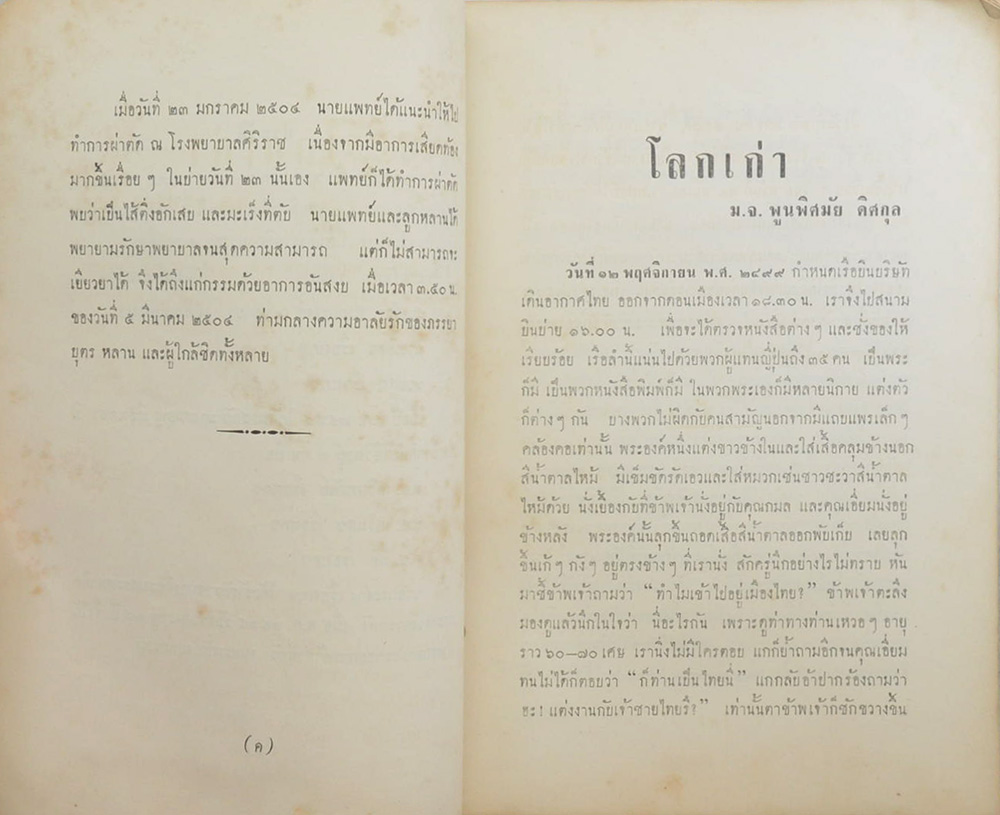 เมื่อวันที่ ๒๓ มกราคม ๒๕๐๔ นายแพทย์ได้แนะนำให้ไป
ทำการผ่าตัด ณ โรงพยาบาลศิริราช เนื่องจากมีอาการเสียดท้อง
มากขึ้นเรื่อย ๆ ในบ่ายวันที่ ๒๓ นั้นเอง แพทย์ก็ได้ทำการผ่าตัด
พบว่าเป็นไส้ติ่งอักเสบ และมะเร็งที่ตับ นายแพทย์และลูกหลานได้
พยายามรักษาพยาบาลจนสุดความสามารถ แต่ก็ไม่สามารถจะ
เยียวยาได้ จึงได้ถึงแก่กรรมด้วยอาการอันสงบ เมื่อเวลา ๓.๕๐ น.
ของวันที่ ๕ มีนาคม ๒๕๐๔ ท่ามกลางความอาลัยรักของภรรยา
บุตร หลาน และผู้ใกล้ชิดทั้งหลาย
(ค)
โลกเก่า
ม.จ. พูนพิศมัย ดิศกุล
วันที่ ๑๒ พฤศจิกายน พ.ศ. ๒๔๙๙ กำหนดเรือบินบริษัท
เดินอากาศไทย ออกจากดอนเมืองเวลา ๑๘.๓๐ น. เราจึงไปสนาม
บินบ่าย ๑๖.๐๐ น. เพื่อจะได้ตรวจหนังสือต่าง ๆ และชั่งของให้
เรียบร้อย เรือลำนี้แน่นไปด้วยพวกผู้แทนญี่ปุ่นถึง ๓๕ คน เป็นพระ
ก็มี เป็นพวกหนังสือพิมพ์ก็มี ในพวกพระเองก็มีหลายนิกาย แต่งตัว
ก็ต่าง ๆ กัน บางพวกไม่ผิดกับคนสามัญนอกจากมีแถบแพรเล็ก ๆ
คล้องคอเท่านั้น พระองค์หนึ่งแต่งขาวข้างในและใส่เสื้อคลุมข้างนอก
สีน้ำตาลไหม้ มีเข็มขัดรัดเอวและใส่หมวกเช่นชาวชะวาสีน้ำตาล
ไหม้ด้วย นั่งเยื้องกับที่ข้าพเจ้านั่งอยู่กับคุณกมล และคุณเอี่ยมนั่งอยู่
ข้างหลัง พระองค์นั้นลุกขึ้นถอดเสื้อสีน้ำตาลออกพับเก็บ เลยลุก
ขึ้นเก้ ๆ กัง ๆ อยู่ตรงข้าง ๆ ที่เรานั่ง สักครู่นึกอย่างไรไม่ทราบ หัน
มาชี้ข้าพเจ้าถามว่า “ทำไมเข้าไปอยู่เมืองไทย?” ข้าพเจ้าตะลึง
มองดูแล้วนึกในใจว่า นี่อะไรกัน เพราะดูท่าทางท่านเหวอ ๆ อายุ
ราว ๖๐—๗๐ เศษ เรานิ่งไม่มีใครตอบ แกก็ย้ำถามอีกจนคุณเอี่ยม
ทนไม่ได้ก็ตอบว่า “ก็ท่านเป็นไทยนี่” แกกลับอ้าปากร้องถามว่า
ฮะ! แต่งงานกับเจ้าชายไทยรึ?” เท่านั้นตาข้าพเจ้าก็ชักขวางขึ้น